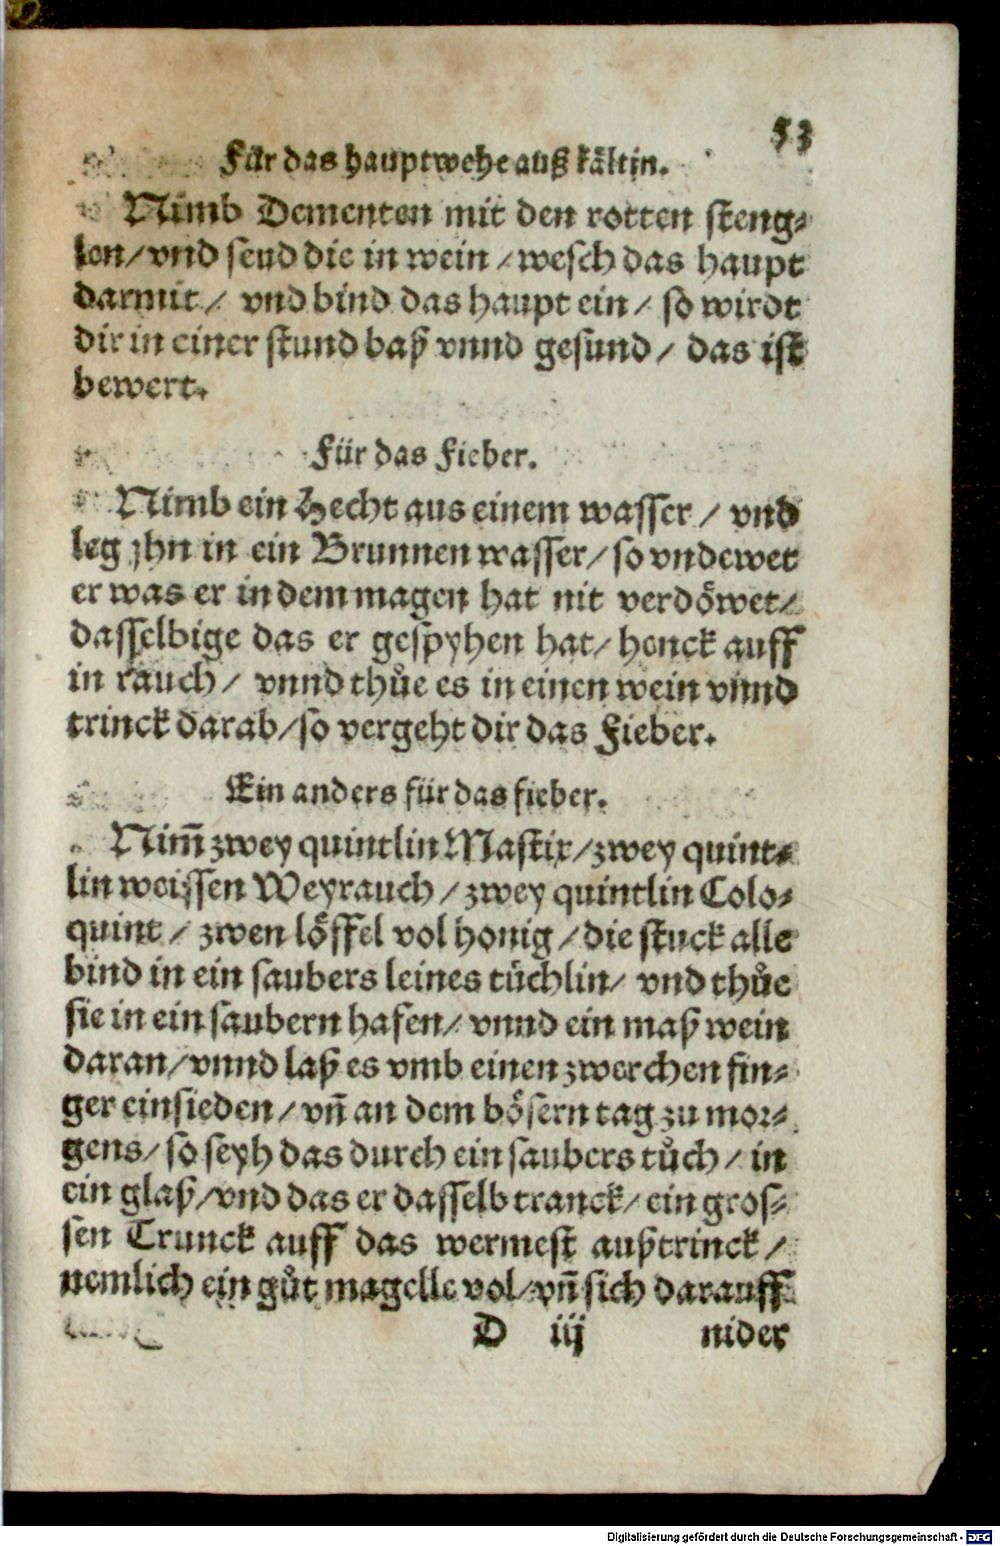 53
Für das hauptwehe auß kältin.
Nimb Dementen mit den rotten steng⸗
len/ vnd seud die in wein / wesch das haupt
darmit/ vnd bind das haupt ein/ so wirdt
dir in einer stund baß vnnd gesund/ das ist
bewert.
Für das Fieber.
Nimb ein Hecht aus einem wasser / vnd
leg jhn in ein Brunnen wasser/ so vndewet
er was er in dem magen hat nit verdöwet/
dasselbige das er gespyhen hat/ henck auff
in rauch/ vnnd thůe es in einen wein vnnd
trinck darab/ so vergeht dir das Fieber.
Ein anders für das fieber.
Nim̄ zwey quintlin Mastix/ zwey quint⸗
lin weissen Weyrauch / zwey quintlin Colo⸗
quint / zwen löffel vol honig / die stuck alle
bind in ein saubers leines tüchlin/ vnd thůe
sie in ein saubern hafen/ vnnd ein maß wein
daran/ vnnd laß es vmb einen zwerchen fin⸗
ger einsieden/ vn̄ an dem bösern tag zu mor⸗
gens/ so seyh das durch ein saubers tůch/ in
ein glaß/ vnd das er dasselb tranck/ ein gros⸗
sen Trunck auff das wermest außtrinck /
nemlich ein gůt magelle vol/ vn̄ sich darauff
D iij nider
Digitalisierung gefördert durch die Deutsche Forschungsgemeinschaft - DFG